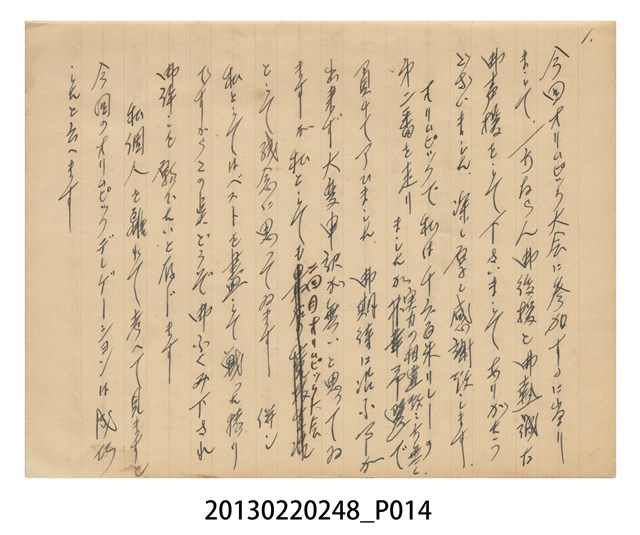 1.
今回オリムピック大会に参加するに当り
まして、方ならん御後援と御熱誠な
御声援をして下さいましてありがたう
ございました。深く厚く感謝致します
オリムピックで私は千六百米リレーの
第二番を走り ましたが 実力の相違致し方無く
負けて了ひました。御期待に沿ふ事が
出来ず大変申訳が無いと思ってゐ
ますが私としても 二回目オリムピック大会
として残念に思ってゐます 併し
私としてはベストを盡して戦った積り
ですからこの点どうぞ御ふくみ下され
御許しを願ひたいと存じます
私個人を離れて考へて見ますと
今回のオリムピックデレゲーションは成功
したと云へます
20130220248_P014